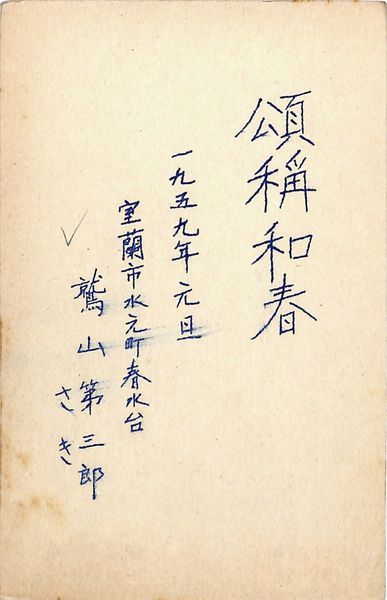 頌稱和春
一九五九年元旦
室蘭市水元町春水台
鷲山第三郎
さき